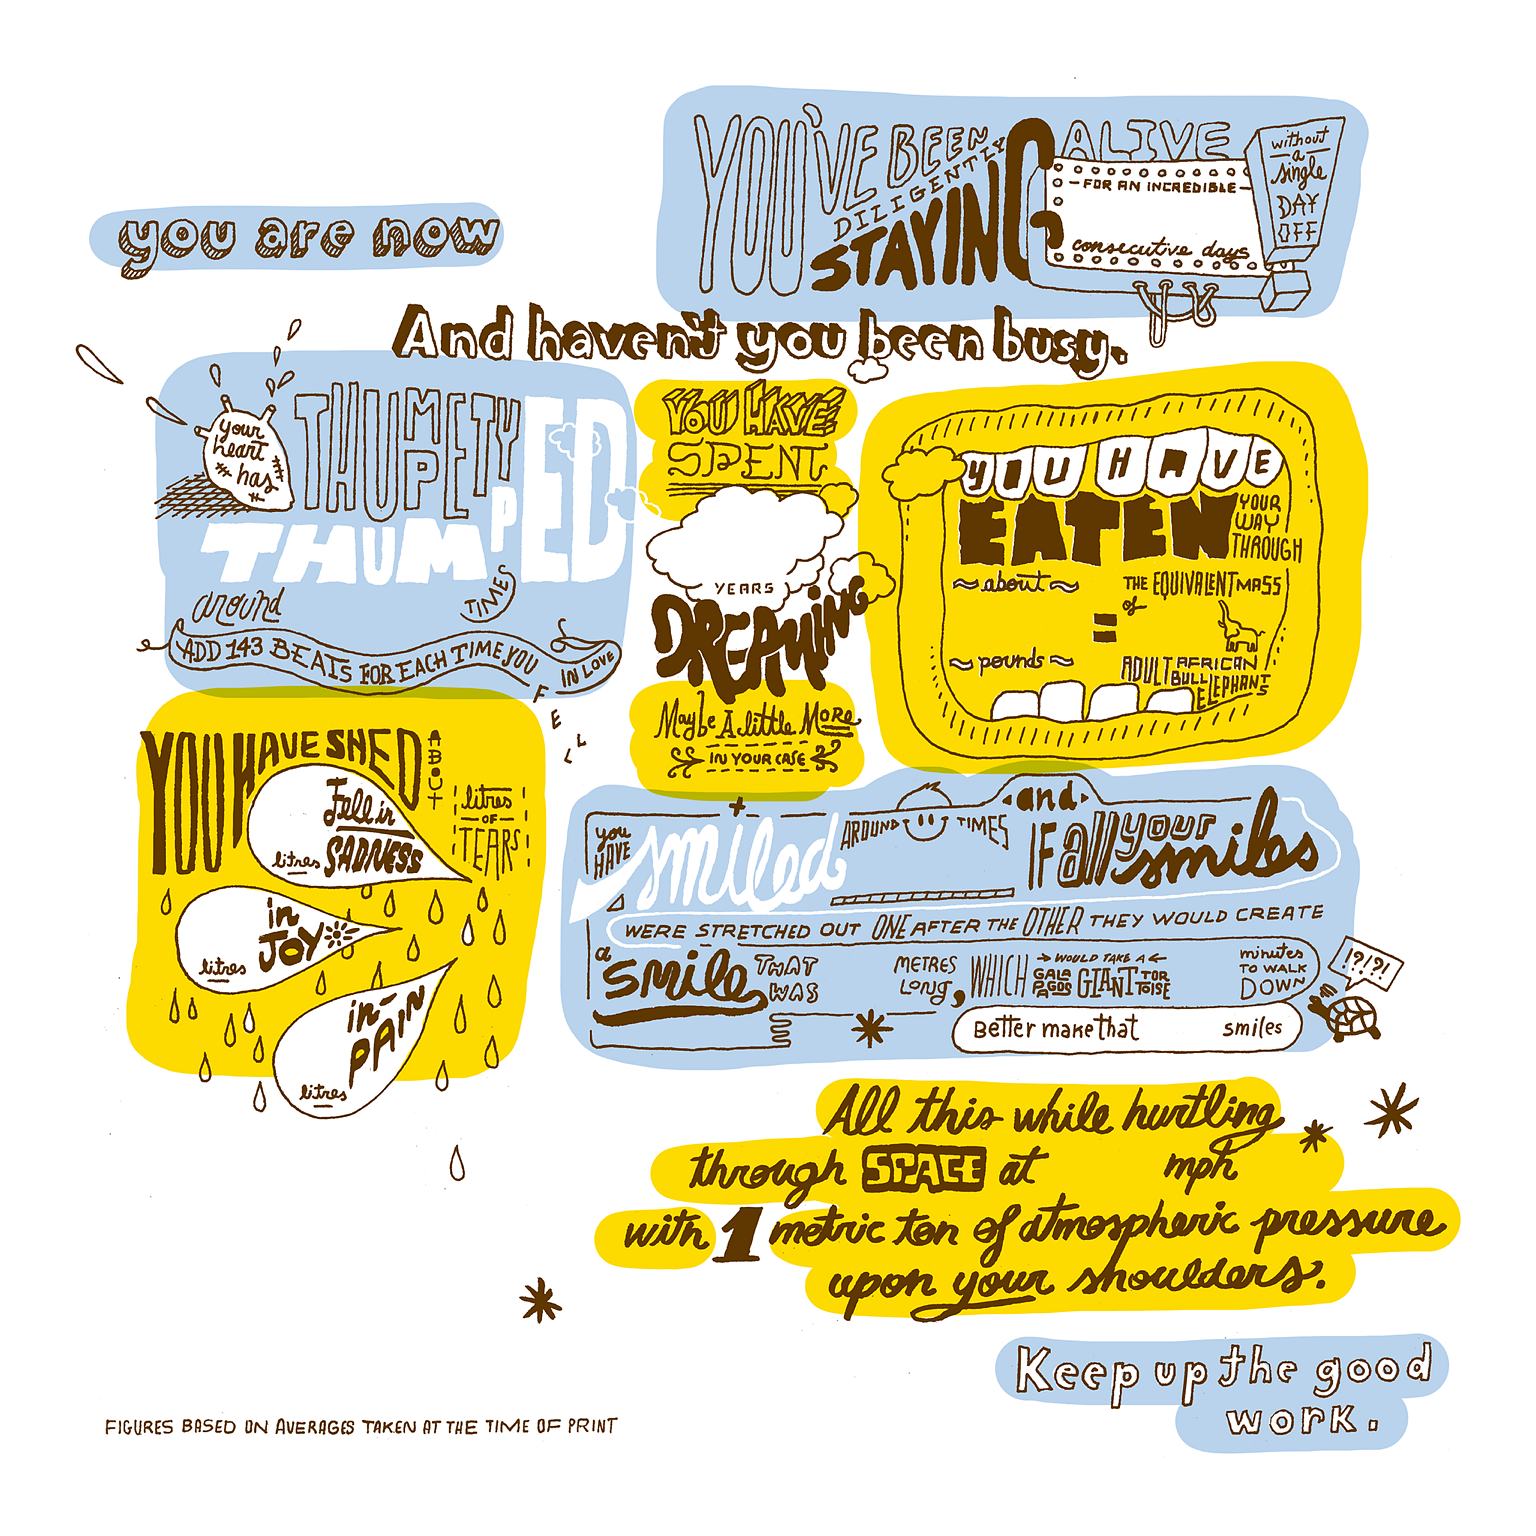 you are now
YOU'VE BEEN
DILIGENTLY
STAYING
ALIVE
FOR AN INCREDIBLE
consecutive days
without
a
single
DAY
OFF
And haven't you been busy.
your
heart
has
THUMPETY
THUMPED
around
TIMES
ADD 143 BEATS FOR EACH TIME YOU
FELL
IN LOVE
YOU HAVE
SPENT
YEARS
DREAMING
Maybe A little More
IN YOUR CASE
YOU HAVE
EATEN
YOUR
WAY
THROUGH
about
pounds
=
THE EQUIVALENT MASS
of
ADULT AFRICAN
BULL
ELEPHANTS
YOU HAVE SHED
ABOUT
litres
OF
TEARS
Fell in
litres SADNESS
in
JOY
litres
in
PAIN
litres
you
HAVE
smiled
AROUND TIMES
and
IF all your
smiles
WERE STRETCHED OUT ONE AFTER THE OTHER THEY WOULD CREATE
a
smile
THAT
WAS
METRES
LONG,
WHICH
WOULD TAKE A
GALAPAGOS
GIANT
TORTOISE
minutes
TO WALK
DOWN
!?!?!
Better make that smiles
All this while hurtling
through SPACE at mph
with 1 metric ton of atmospheric pressure
upon your shoulders.
Keep up the good
work.
FIGURES BASED ON AVERAGES TAKEN AT THE TIME OF PRINT